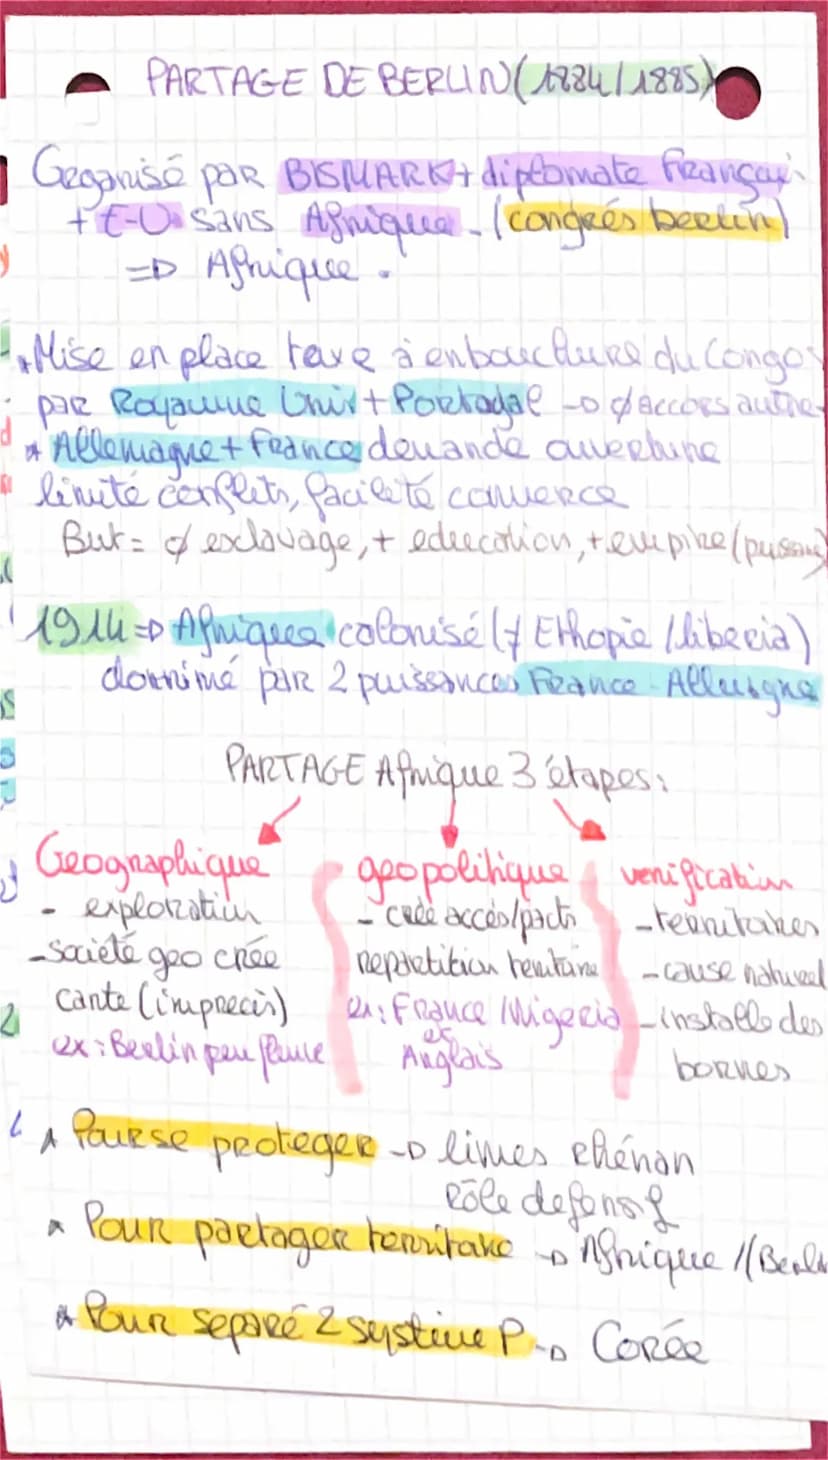 PARTAGE DE BERLIN (1884/1885)
Geganisé par BISMARK + diplomate Français
+ E-U sans Afrique - (congrés berlin)
=> Afrique.
Mise en place taxe à embouchure du Congo
par Royaume Unis + Portugal -> ∅ accès autre
* Allemagne + France demande ouverture
limité conflits, facileté commerce
But = ∅ exclavage, + education, + empire (puissan
1914 => Afrique colonisé (≠ Ethopie / liberia)
dominé par 2 puissances France - Allemagne
PARTAGE Afrique 3 étapes:
Geographique
- exploration
- société geo crée
carte (imprecis)
ex: Berlin peu fleuve
geopolitique
- crée accés/pacts
repartition territoire
ex: France / Nigeria
et
Anglais
verification
- territoires
- cause naturel
- installe des
bornes
* Pour se proteger -> limes Rhénan
Rôle defensif
* Pour partager territoire -> Afrique // (Berlin
* Pour separé 2 systéme P -> Corée